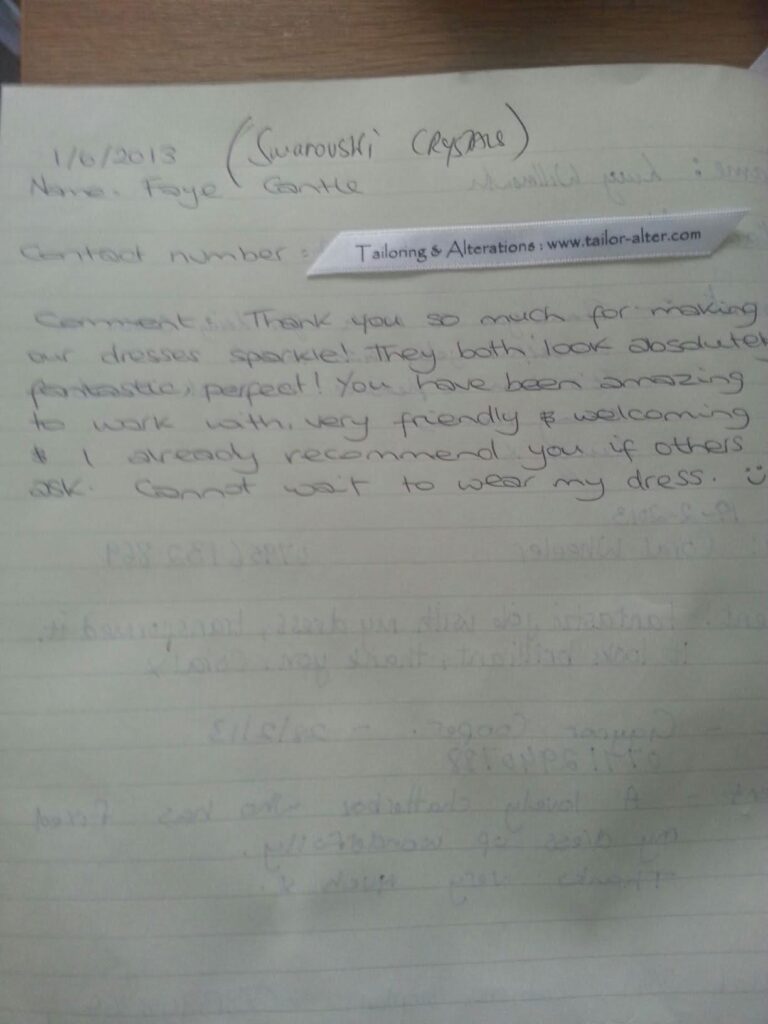 (Swarovski CRYSTALS)
1/6/2013
Name. Faye Cantle
Contact number :
Tailoring & Alterations : www.tailor-alter.com
Comment: Thank you so much for making
our dresses sparkle! They both look absolutely
fantastic, perfect! You have been amazing
to work with, very friendly & welcoming
& I already recommend you if others
ask. Cannot wait to wear my dress. :)